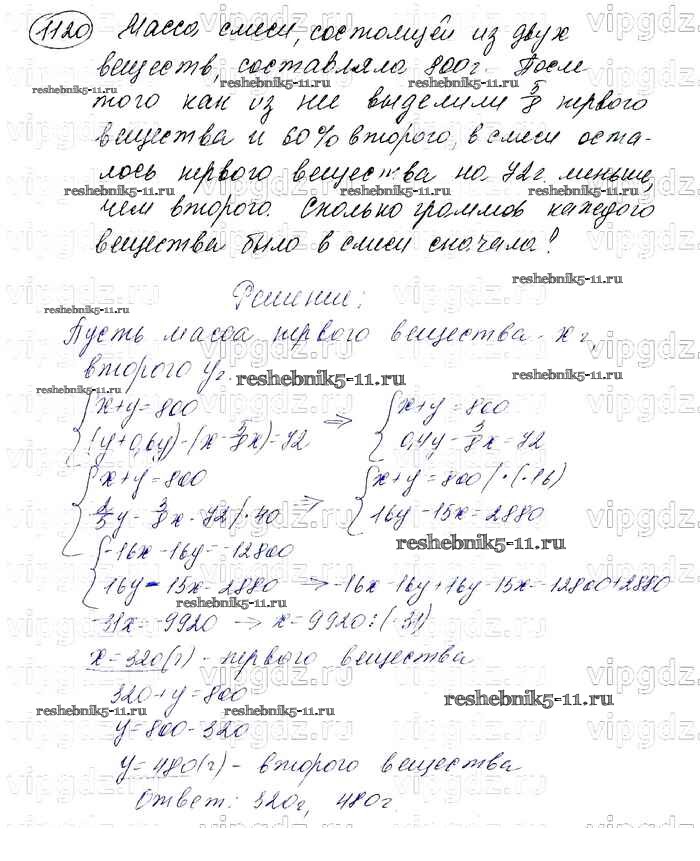 1120 Масса смеси, состоящей из двух
веществ, составляла 800г. После
того как из нее выделили 5/8 первого
вещества и 60% второго, в смеси оста-
лось первого вещества на 72г. меньше,
чем второго. Сколько граммов каждого
вещества было в смеси сначала?
Решение:
Пусть масса первого вещества - x г,
второго y г.
{x+y=800 => {x+y=800
{(y+0,6y)-(x-5/8x)=72 {0,4y-3/8x=72
{x+y=800 {x+y=800 |·(-16)
{2/5y-3/8x=72 |·40 => {16y-15x=2880
{-16x-16y=-12800
{16y-15x=2880 => -16x-16y+16y-15x=-12800+2880
-31x=-9920 -> x=9920:(-31)
x=320(г)- первого вещества
320+y=800
y=800-320
y=480(г)- второго вещества
Ответ: 320г, 480г.
reshebnik5-11.ru
vipgdz.ru